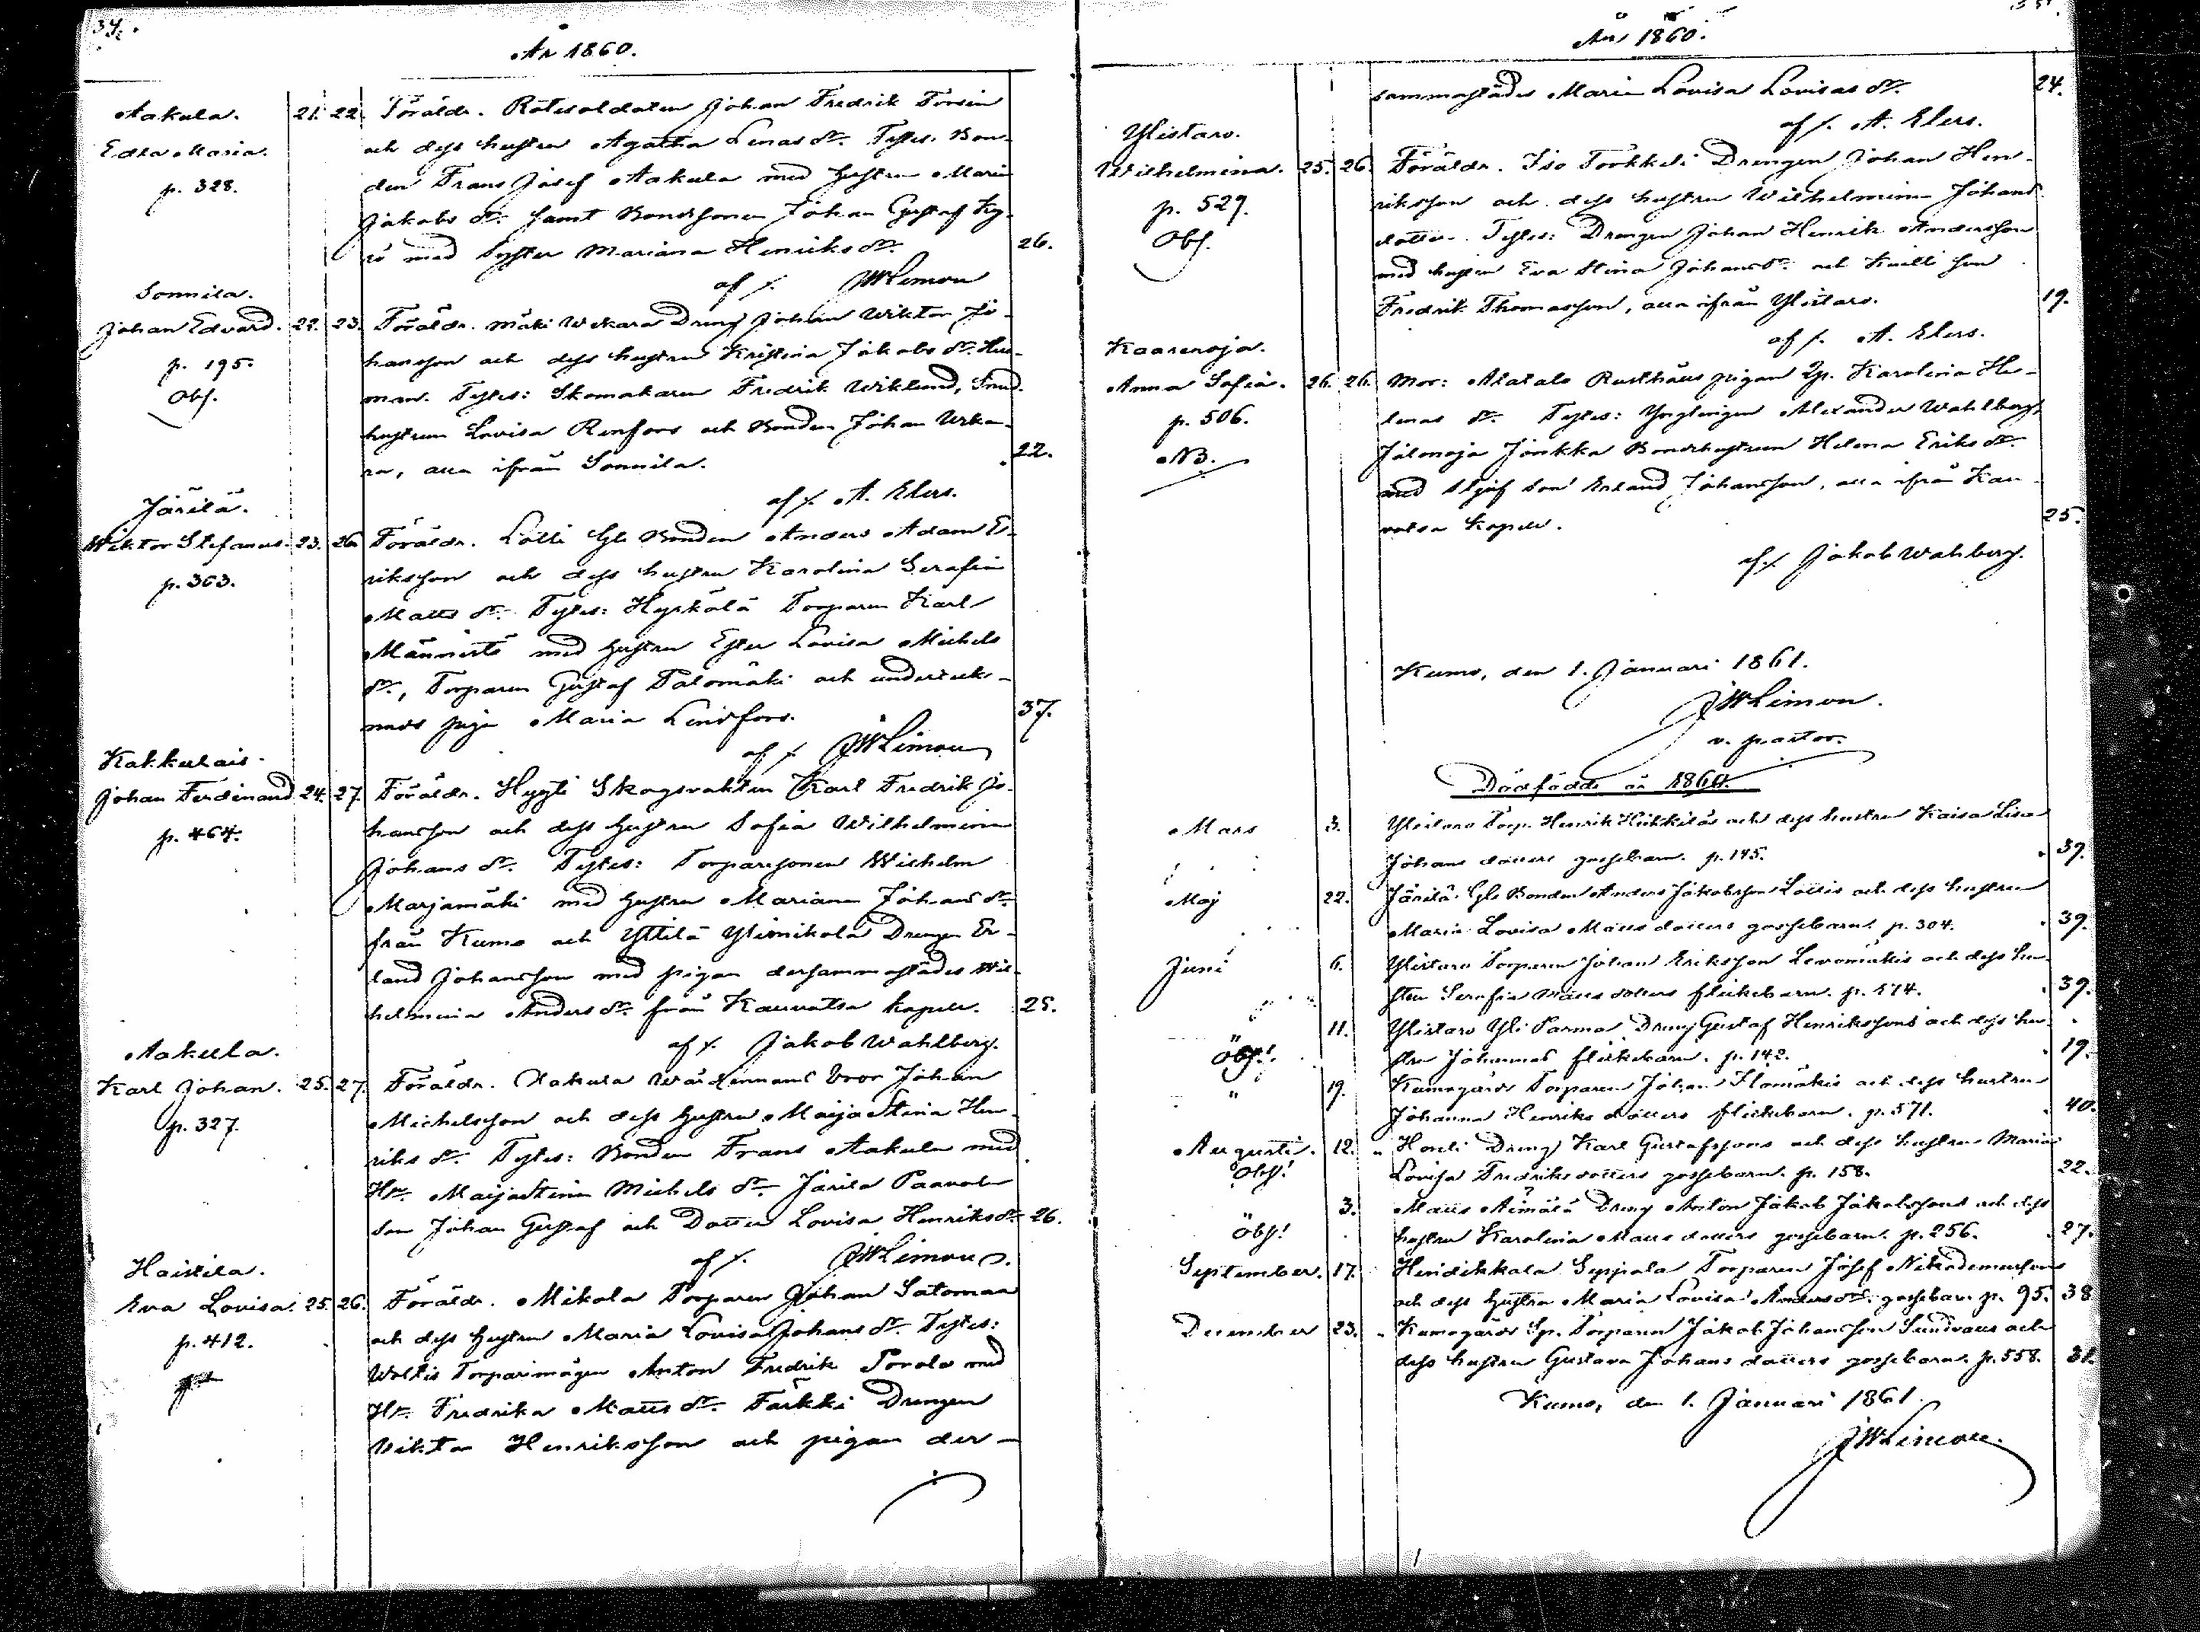 34.
År 1860.
Aakula.
Edla Maria.
p. 328.
21. 22. Föräldr. Rotesoldaten Johan Fredrik Forsin
och dess hustru Agatha Lenas dr. Testes. Bon-
den Frans Josef Aakula med hustru Maria
Jakobs dr. samt Bondsonen Johan Gustaf Ky-
rö med Syster Mariana Henriks dr. 26.
af /. JWLimon
Sonnila.
Johan Edvard. 22. 23.
p. 195.
Obs.
Föräldr. Mäki Wekara Dreng Johan Wiktor Jo-
hansson och dess hustru Kristina Jakobs dr.
Testes: Skomakaren Fredrik Wiklund, Smed
hustrun Lovisa Renfors och Bonden Johan Weka-
ra, alla ifrån Sonnila. 22.
af /. A. Elers.
Järilä.
Wiktor Stefanus. 23. 26.
p. 363.
Föräldr. Lotti Gle Bonden Anders Adam E-
riksson och dess hustru Karolina Serafia
Matts dr. Testes: Hyrkölä Torparen Karl
Männistö med hustru Ester Lovisa Michels
dr., Torparen Gustaf Talomäki och underteck-
nads piga Maria Lindfors. 37.
af /. JWLimon
Kakkulais.
Johan Ferdinand 24. 27.
p. 464.
Föräldr. Hygti Skogsvakten Karl Fredrik Jo-
hansson och dess hustru Sofia Wilhelmina
Johans dr. Testes: Torparesonen Wilhelm
Marjamäki med hustru Mariana Johans dr.
från Kumo och Yttilä Ylinikola Drengen Er-
land Johansson med pigan dersammastädes Wil-
helmina Anders dr. från Kauvatsa kapell. 25.
af /. Jakob Wahlberg.
Aakula.
Karl Johan. 25. 27.
p. 327.
Föräldr. Aakula Johan
Michelsson och dess hustru Maija Stina Hen-
riks dr. Testes: Bonden Frans Aakula med
Hu. Maija Stina Michels dr. Järilä Paavola
son Johan Gustaf och Dotter Lovisa Henriks dr. 26.
af /. JWLimon.
Haistila.
Eva Lovisa. 25. 26.
p. 412.
Föräldr. Mikola Torparen Johan Satomaa
och dess hustru Maria Lovisa Johans dr. Testes:
Woltis Torparimågen Anton Fredrik Porola med
Hu. Fredrika Matts dr. Tarkki Drengen
Viktor Henriksson och pigan der-
År 1860.
sammastädes Maria Lovisa Lovisas dr. 24.
af /. A. Elers.
Ylistaro.
Wilhelmina. 25. 26.
p. 529.
Obs.
Föräldr. Iso Torkkeli Drengen Johan Hen-
riksson och dess hustru Wilhelmina Johans
dotter. Testes: Drengen Johan Henrik Andersson
med hustru Eva Stina Johans dr. och Knilli son
Fredrik Thomasson, alla ifrån Ylistaro. 19.
af /. A. Elers.
Kaarenoja.
Anna Sofia. 26. 26.
p. 506.
NB.
Mor: Alatalo Rusthålls pigan Karolina He-
lenas dr. Testes: Ynglingen Alexander Wahlberg,
Jalonoja Jonkka Bondehustrun Helena Eriks dr.
med Styfson Erland Johansson, alla ifrån Kau-
vatsa Kapell. 25.
af /. Jakob Wahlberg.
Kumo, den 1. Januari 1861.
JWLimon.
v. pastor.
Dödfödde år 1860.
Mars 3. Ylistaro Torp. Henrik Hiihkiläs och dess hustru Kaisa Lisa
Johans dotters gossebarn. p. 145. 39.
Maj 22. Järilä Gle Bonden Anders Jakobsson Lottis och dess hustru
Maria Lovisa Matts dotters gossebarn. p. 304. 39.
Juni 6. Ylistaro Torparen Johan Eriksson Levomäkis och dess hu-
stru Serafia Matts dotters flickebarn. p. 574. 39.
" 11. Ylistaro Yli Parma Dreng Gustaf Henrikssons och dess hu-
Obs! stru Johannas flickebarn. p. 142. 19.
" 19. Kumogård Torparen Johan Ilomäkis och dess hustru
Johanna Henriks dotters flickebarn. p. 571. 40.
Augusti. 12. " Hoveli Dreng Karl Gustafssons och dess hustrus Maria
Obs! Lovisa Fredriks dotters gossebarn. p. 158. 22.
3. Matts Aimälä Dreng Anton Jakob Jakobssons och dess
Obs! hustru Karolina Matts dotters gossebarn. p. 256. 27.
September. 17. Heridikkala Seppala Torparen Josef Nikodemussons
och dess hustru Maria Lovisa Anders dr. gossebarn p. 95. 38
December 23. " Kumogård Sp. Torparen Jakob Johansson Sundvalls och
dess hustru Gustava Johans dotters gossebarn. p. 558. 31.
Kumo, den 1. Januari 1861.
JWLimon.